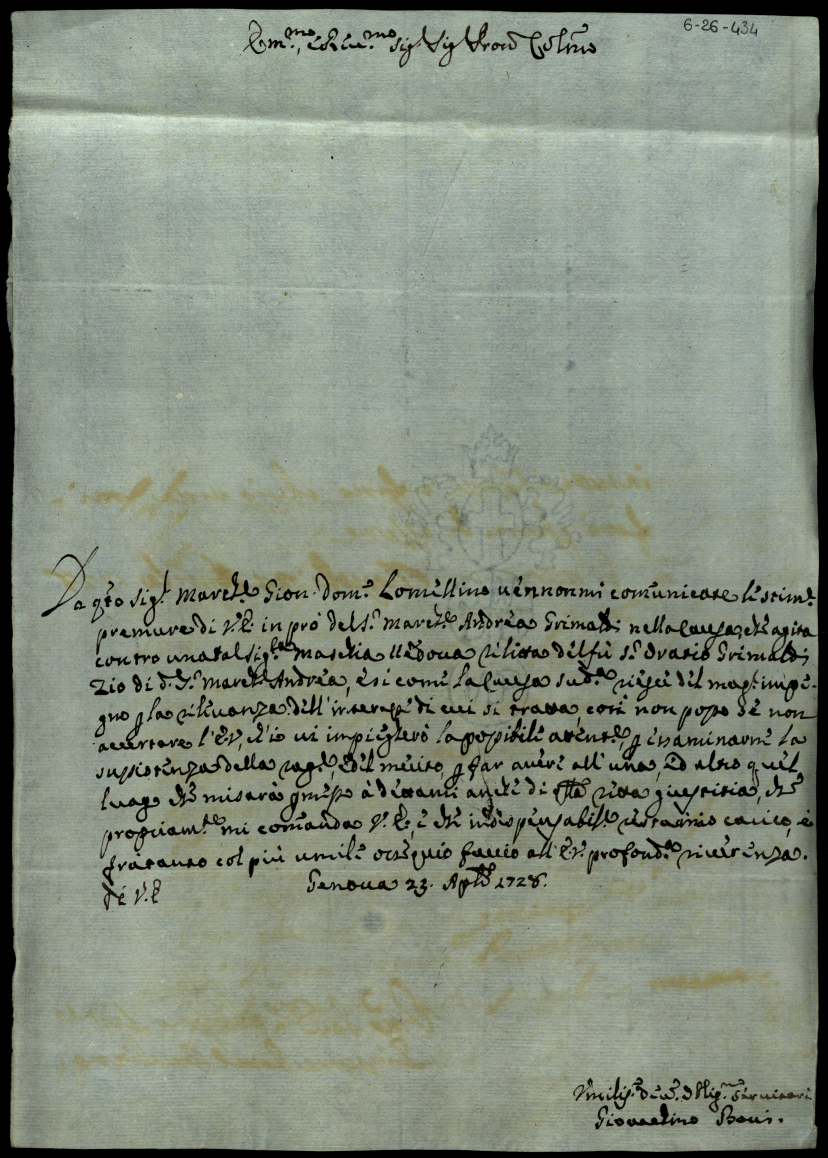 6-26-434
Em.mo, e Rev.mo Sig.r Sig.r Pron
Da q.to Sig.r March.e Gion Dom.o Lomellino vennonmi comunicate le stim.e
premure di V.E. in pro del S.r March.e Andrea Grimaldi nella Causa, che agita
contro una tal Sig.ra vedova relitta del fù S.r Oratio Grimaldi
Zio di d.o S.r March.e Andrea, e si come la Causa sud.a del mag.r impe-
gno p la rilevanza dell'interesse di cui si tratta, così non posso se non
accertare l'E.V., ch'io vi impiegherò la possibile attent.e, p essaminarne la
susistenza della rag.e, e del merito, p far avere all'una, ed altro quel
luogo che mi sarà p a dettami di retta giustitia, che
mi comanda V.E., e che indispensabil.e carico, e
frà tanto col più umile ossequio faccio all'E.V. profond.a riverenza.
Di V.E.
Genova 23. Aple 1728.
Umiliss.o Dev.o Oblig.mo Servitore